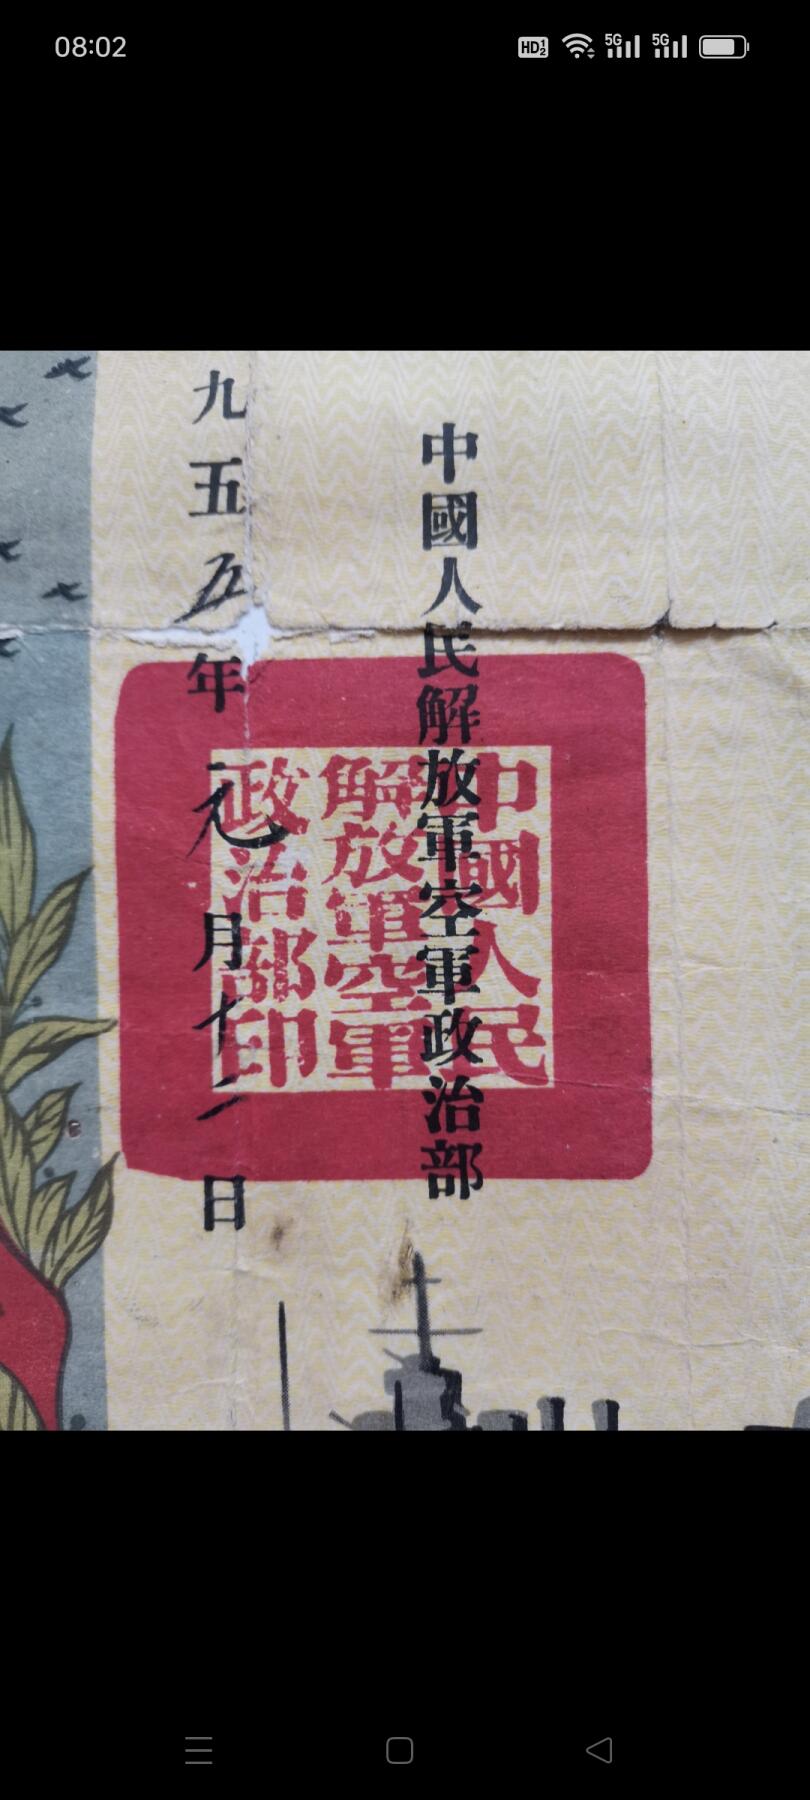 08:02
HD 1 2
5G
5G
中國人民解放軍空軍政治部
九五五年元月十二日
中國人民
解放軍空軍
政治部印